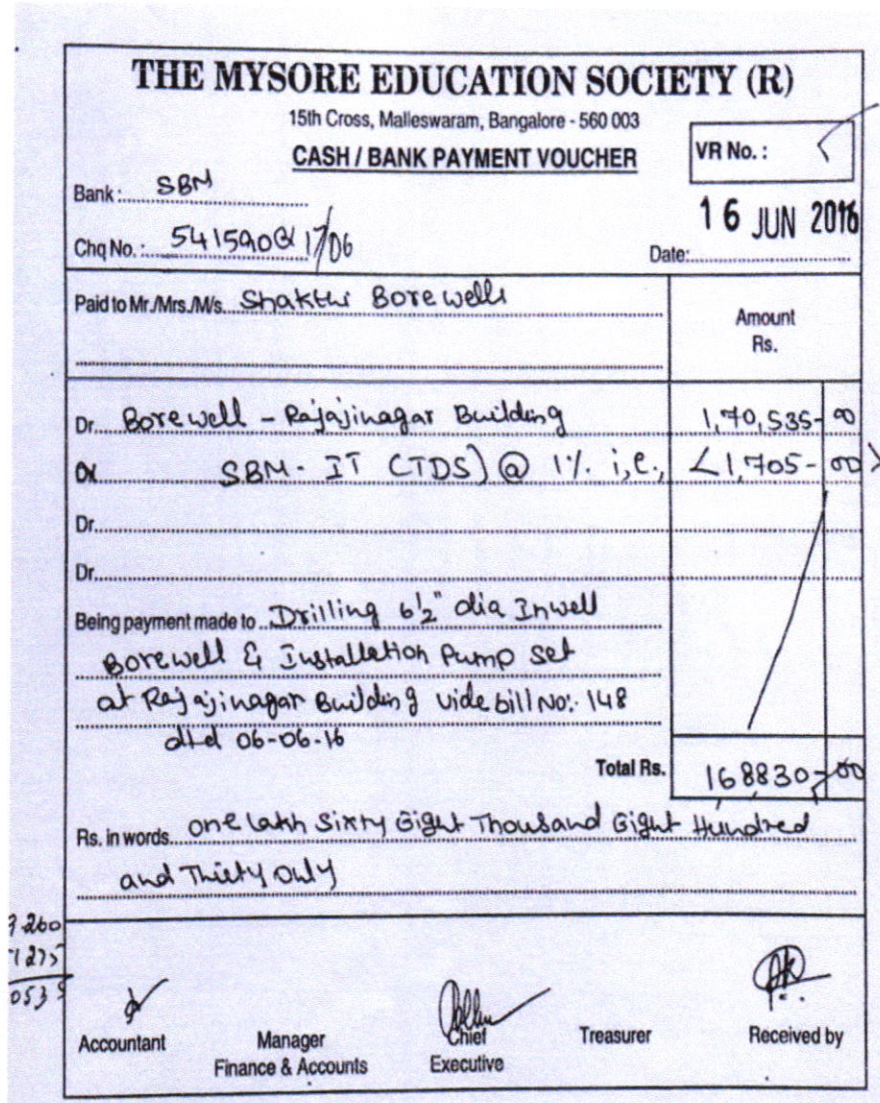 THE MYSORE EDUCATION SOCIETY (R)
15th Cross, Malleswaram, Bangalore - 560 003
CASH / BANK PAYMENT VOUCHER
VR No. :
Bank : SBM
16 JUN 2016
Chq No. : 541590 @ 17/06
Date:
Paid to Mr./Mrs./M/s. Shakthi Borewells
Amount
Rs.
Dr. Borewell - Rajajinagar Building 1,70,535-00
SBM - IT (TDS) @ 1%. i,e., <1,705-00>
Dr.
Dr.
Being payment made to Drilling 6½" dia Inwell
Borewell & Installation Pump set
at Rajajinagar Building vide bill No:- 148
dtd 06-06-16
Total Rs. 168830-00
Rs. in words. One lakh Sixty Eight Thousand Eight Hundred
and Thirty Only
9260
1275
0535
Accountant Manager Chief Treasurer Received by
Finance & Accounts Executive